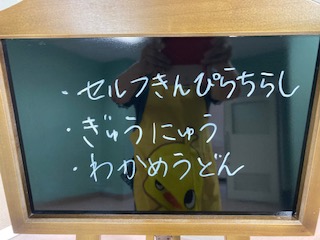 ・セルフきんぴらちらし
・ぎゅうにゅう
・わかめうどん